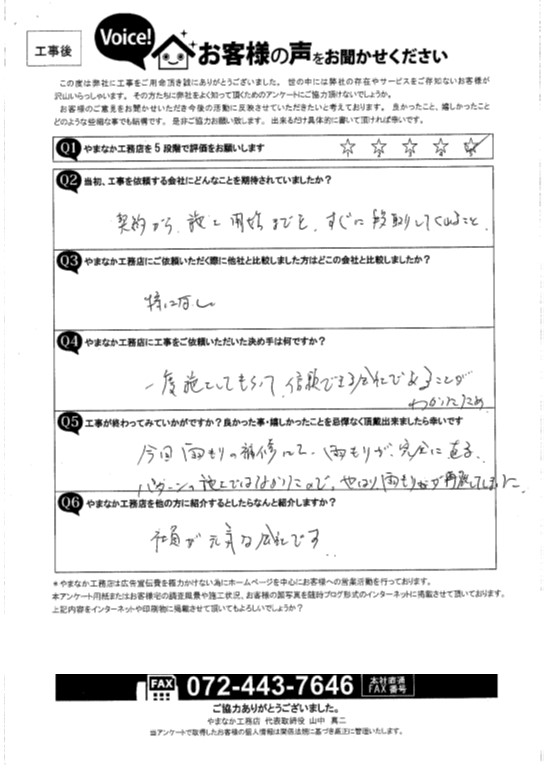 工事後
Voice!
お客様の声をお聞かせください
この度は弊社に工事をご用命頂き誠にありがとうございました。世の中には弊社の存在やサービスをご存知ないお客様が
沢山いらっしゃいます。その方たちに弊社をよく知って頂くためのアンケートにご協力頂けないでしょうか。
お客様のご意見をお聞かせいただき今後の活動に反映させていただきたいと考えております。良かったこと、嬉しかったこと
どのような些細な事でも結構です。是非ご協力お願い致します。出来るだけ具体的に書いて頂ければ幸いです。
Q1 やまなか工務店を5段階で評価をお願いします
☆1 ☆2 ☆3 ☆4 ☆5
Q2 当初、工事を依頼する会社にどんなことを期待されていましたか?
契約から、施工開始までを、すぐに段取りしてくれること、
Q3 やまなか工務店にご依頼いただく際に他社と比較しました方はどこの会社と比較しましたか?
特になし
Q4 やまなか工務店に工事をご依頼いただいた決め手は何ですか?
一度施工してもらって、信頼できる会社であることが
わかったため
Q5 工事が終わってみていかがですか?良かった事・嬉しかったことを忌憚なく頂戴出来ましたら幸いです
今回雨もりの補修にて、雨もりが完全に直る、
パターンの施工ではなかったので、やはり雨もりが再発してしまった
Q6 やまなか工務店を他の方に紹介するとしたらなんと紹介しますか?
社員が元気な会社です。
*やまなか工務店は広告宣伝費を極力かけない為にホームページを中心にお客様への営業活動を行っております。
本アンケート用紙またはお客様宅の調査風景や施工状況、お客様の顔写真を随時ブログ形式のインターネットに掲載させて頂いております。
上記内容をインターネットや印刷物に掲載させて頂いてもよろしいでしょうか?
FAX 072-443-7646 本社直通FAX番号
ご協力ありがとうございました。
やまなか工務店 代表取締役 山中 真二
当アンケートで取得したお客様の個人情報は関係法規に基づき厳正に管理いたします。